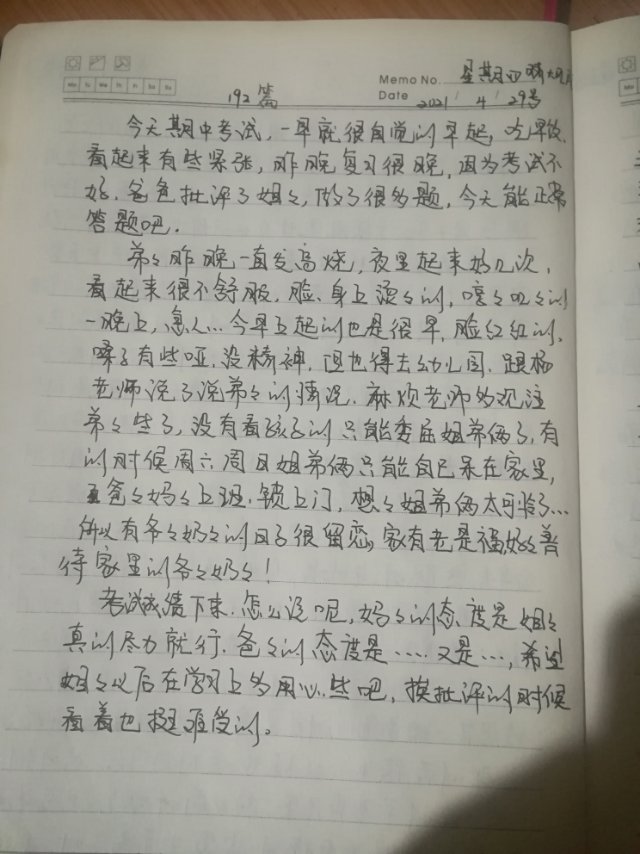 Mo Tu We Th Fr Sa Su
Memo No. 星期四 晴大风
192篇
Date 2021 / 4 / 29号
今天期中考试，一早就很自觉的早起，吃早饭，
看起来有些紧张，昨晚复习很晚，因为考试不
好，爸爸批评了姐々，做了很多题，今天能正常
答题吧.
弟々昨晚一直发高烧，夜里起来好几次，
看起来很不舒服，脸、身上烫々的，咳々吐々的
一晚上，急人… 今早上起的也是很早，脸红红的，
嗓子有些哑，没精神，但也得去幼儿园，跟杨
老师说了说弟々的情况，麻烦老师多观注
弟々些了，没有看孩子的只能委屈姐弟俩了，有
的时候周六周日姐弟俩只能自己呆在家里，
爸々妈々上班.锁上门，想々姐弟俩太可怜了…
所以有爷々奶々的日子很留恋，家有老是福，好々善
待家里的爷々奶々！
考试成绩下来.怎么说呢，妈々的态度是姐々
真的尽力就行.爸々的态度是……又是…，希望
姐々以后在学习上多用心些吧，挨批评的时候
看着也挺难受的。